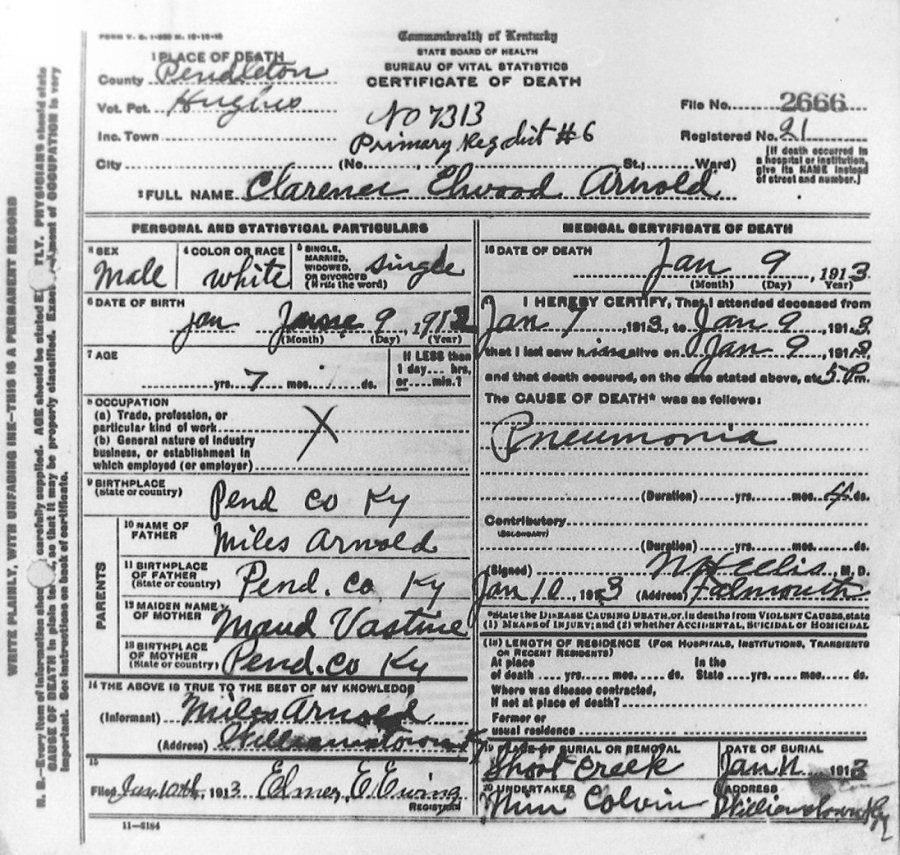 FORM V. S. 1-
Commonwealth of Kentucky
STATE BOARD OF HEALTH
BUREAU OF VITAL STATISTICS
CERTIFICATE OF DEATH
1 PLACE OF DEATH
County Pendleton
Vot. Pct. Hughes
Inc. Town
City (No. , St.; Ward)
No 7313
Primary Reg dist #6
File No. 2666
Registered No. 21
(If death occurred in
a hospital or institution,
give its NAME instead
of street and number.)
2 FULL NAME Clarence Elwood Arnold
PERSONAL AND STATISTICAL PARTICULARS
3 SEX
Male
4 COLOR OR RACE
white
5 SINGLE,
MARRIED,
WIDOWED,
OR DIVORCED
(Write the word)
single
6 DATE OF BIRTH
Jan 9, 191
(Month) (Day) (Year)
7 AGE
yrs. 7 mos. ds.
If LESS than
1 day.... hrs.
or.... min.?
8 OCCUPATION
(a) Trade, profession, or
particular kind of work X
(b) General nature of industry
business, or establishment in
which employed (or employer)
9 BIRTHPLACE
(State or country)
Pend co Ky
PARENTS
10 NAME OF
FATHER
Miles Arnold
11 BIRTHPLACE
OF FATHER
(State or country)
Pend. co. Ky
12 MAIDEN NAME
OF MOTHER
Maud Vastine
13 BIRTHPLACE
OF MOTHER
(State or country)
Pend. co Ky
14 THE ABOVE IS TRUE TO THE BEST OF MY KNOWLEDGE
(Informant) Miles Arnold
(Address) Williamstown Ky
15
Filed Jan 10th, 1913 Elmer E Ewing
REGISTRAR
11-5184
MEDICAL CERTIFICATE OF DEATH
16 DATE OF DEATH
Jan 9, 1913
(Month) (Day) (Year)
I HEREBY CERTIFY, That I attended deceased from
Jan 7 1913, to Jan 9 1913,
that I last saw him alive on Jan 9, 1913,
and that death occured, on the date stated above, at 5 P.m.
The CAUSE OF DEATH* was as follows:
Pneumonia
(Duration) yrs. mos. 4 ds.
Contributory
(SECONDARY)
(Duration) yrs. mos. ds.
(Signed) Ellis, M. D.
Jan 10, 1913 (Address) Falmouth
*State the DISEASE CAUSING DEATH, or, in deaths from VIOLENT CAUSES, state
(1) MEANS OF INJURY; and (2) whether ACCIDENTAL, SUICIDAL OR HOMICIDAL
(18) LENGTH OF RESIDENCE (FOR HOSPITALS, INSTITUTIONS, TRANSIENTS
OR RECENT RESIDENTS)
At place
of death yrs. mos. ds.
In the
State yrs. mos. ds.
Where was disease contracted,
If not at place of death?
Former or
usual residence
19 PLACE OF BURIAL OR REMOVAL
Short Creek
DATE OF BURIAL
Jan 11 1913
20 UNDERTAKER
Colvin
ADDRESS
Williamstown Ky
WRITE PLAINLY, WITH UNFADING INK—THIS IS A PERMANENT RECORD
N. B.—Every item of information shou carefully supplied. AGE should be stated E TLY. PHYSICIANS should state
CAUSE OF DEATH in plain te , so that it may be properly classified. Exact ment of OCCUPATION is very
important. See instructions on back of certificate.